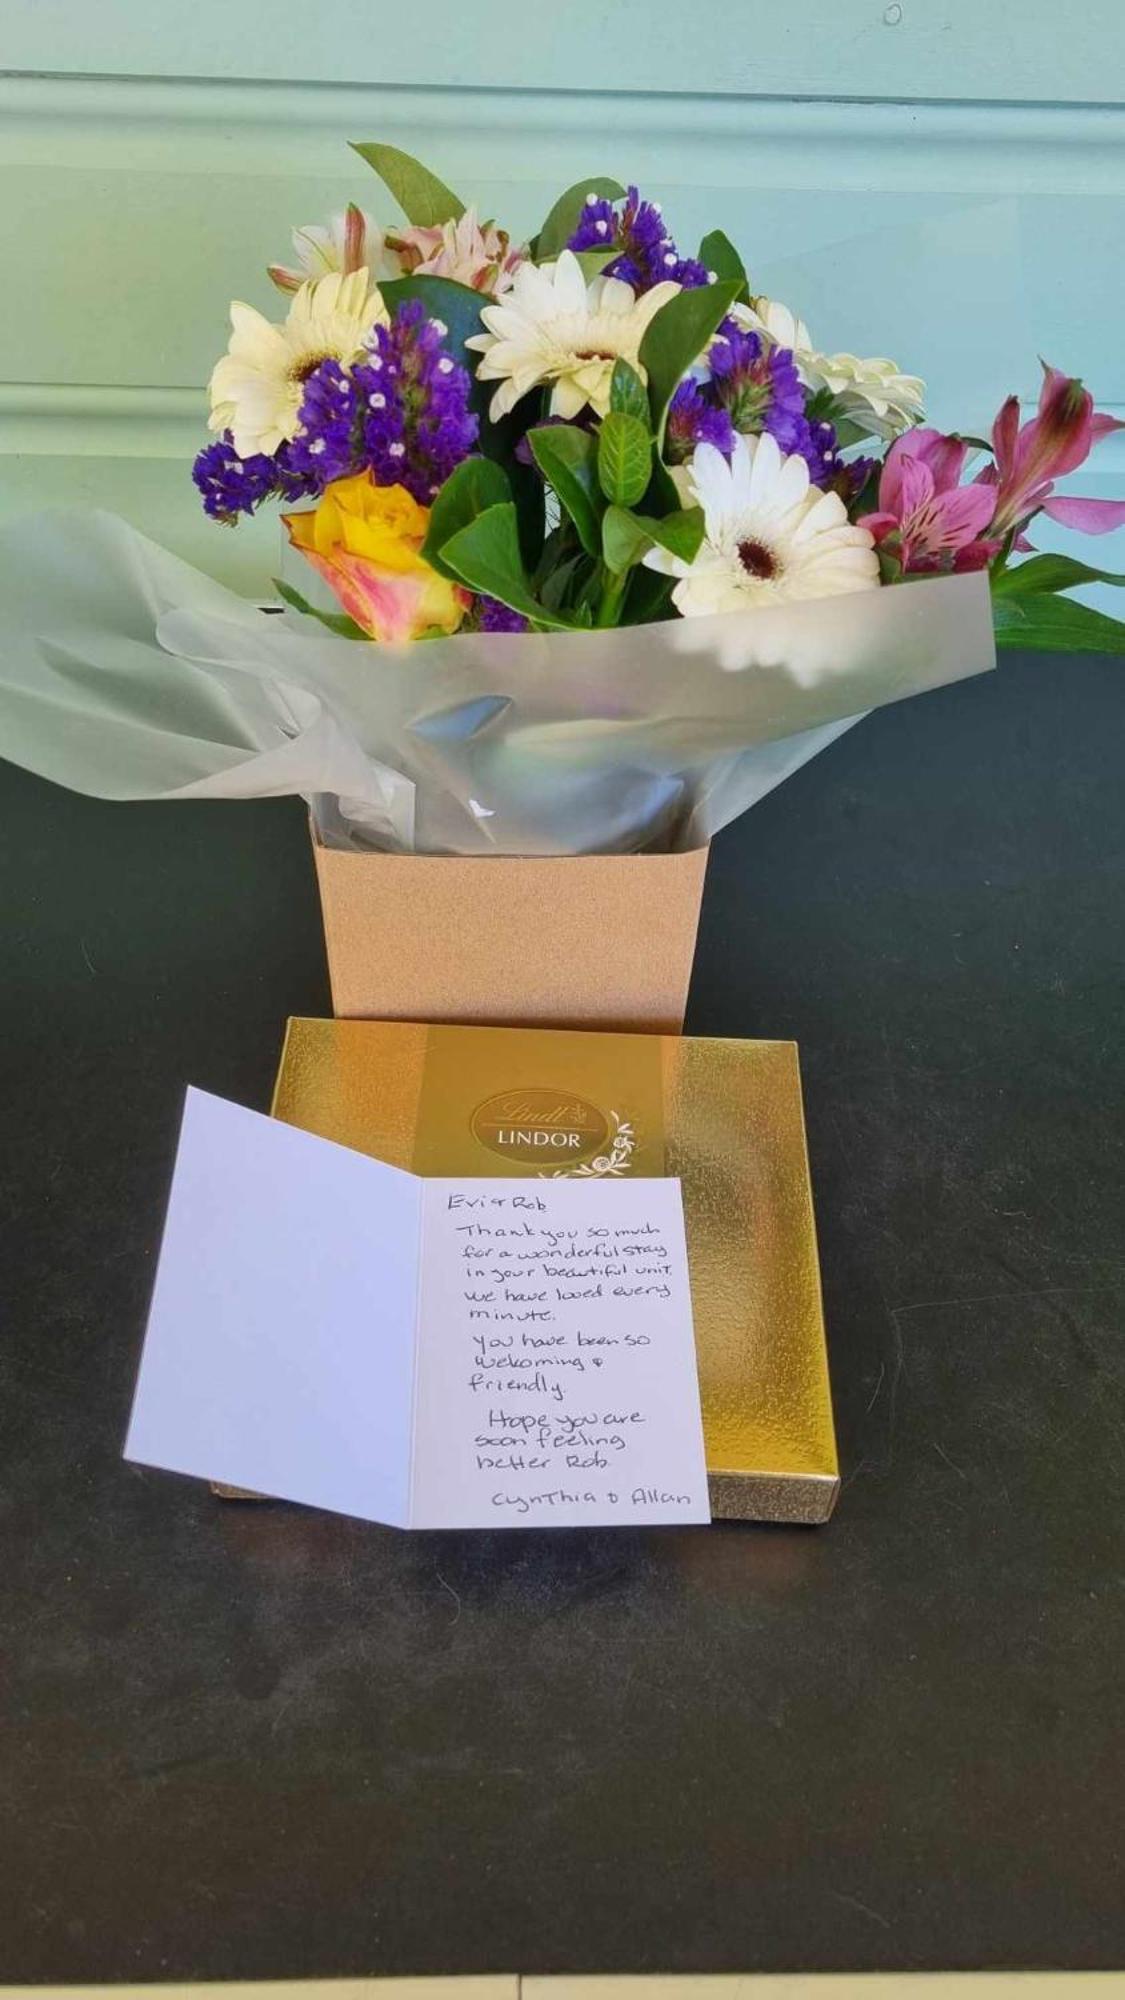 Lindt
LINDOR
Evi & Rob
Thank you so much
for a wonderful stay
in your beautiful unit.
We have loved every
minute.
You have been so
welcoming &
friendly.
Hope you are
soon feeling
better Rob.
Cynthia & Allan